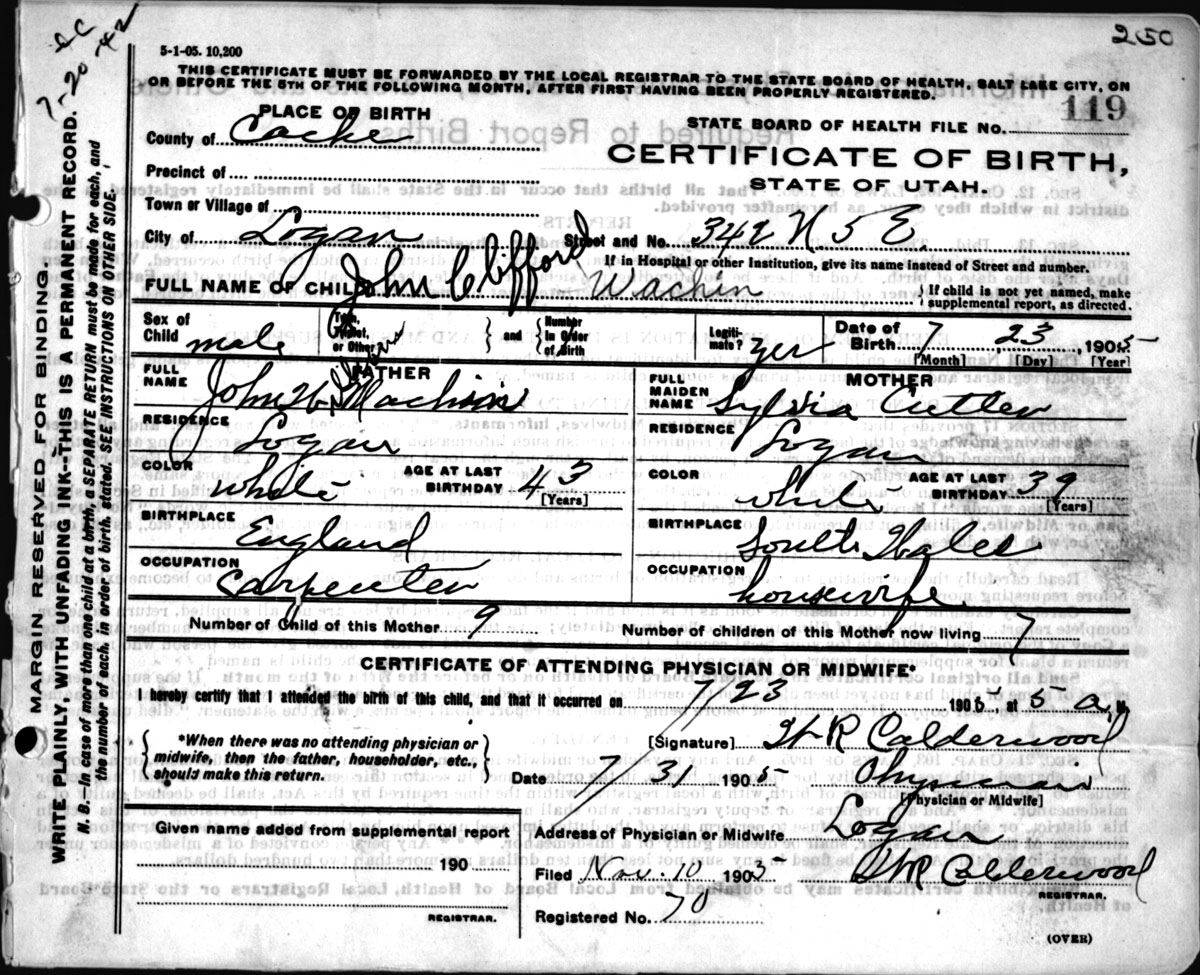 250
7-20-42
5-1-05. 10,200
THIS CERTIFICATE MUST BE FORWARDED BY THE LOCAL REGISTRAR TO THE STATE BOARD OF HEALTH, SALT LAKE CITY, ON
OR BEFORE THE 5TH OF THE FOLLOWING MONTH, AFTER FIRST HAVING BEEN PROPERLY REGISTERED.
MARGIN RESERVED FOR BINDING
WRITE PLAINLY, WITH UNFADING INK--THIS IS A PERMANENT RECORD.
N. B. In case of more than one child at a birth, a SEPARATE RETURN must be made for each, and
the number of each, in order of birth, stated. SEE INSTRUCTIONS ON OTHER SIDE.
PLACE OF BIRTH
County of Cache
Precinct of
Town or Village of
City of Logan
STATE BOARD OF HEALTH FILE NO. 119
CERTIFICATE OF BIRTH,
STATE OF UTAH.
Street and No. 342 N 5 E
If in Hospital or other Institution, give its name instead of Street and number.
FULL NAME OF CHILD John Clifford Wachin
If child is not yet named, make
supplemental report, as directed.
Sex of Child male
Twin, Triplet, or Other
and Number in Order of Birth
Legitimate? yes
Date of Birth 7 23, 1905
[Month] [Day] [Year]
FATHER
FULL NAME John Machin
RESIDENCE Logan
COLOR White
AGE AT LAST BIRTHDAY 43
[Years]
BIRTHPLACE England
OCCUPATION Carpenter
MOTHER
FULL MAIDEN NAME Sylvia Cutler
RESIDENCE Logan
COLOR white
AGE AT LAST BIRTHDAY 39
[Years]
BIRTHPLACE South Wales
OCCUPATION housewife
Number of Child of this Mother 9
Number of children of this Mother now living 7
CERTIFICATE OF ATTENDING PHYSICIAN OR MIDWIFE*
I hereby certify that I attended the birth of this child, and that it occurred on 7/23 1905, at 5 a, M.
*When there was no attending physician or
midwife, then the father, householder, etc.,
should make this return.
[Signature] Calderwood
Date 7/31 1905 Physician
[Physician or Midwife]
Given name added from supplemental report
190
REGISTRAR.
Address of Physician or Midwife Logan
Filed Nov. 10 1905 Calderwood
REGISTRAR.
Registered No. 70
(OVER)